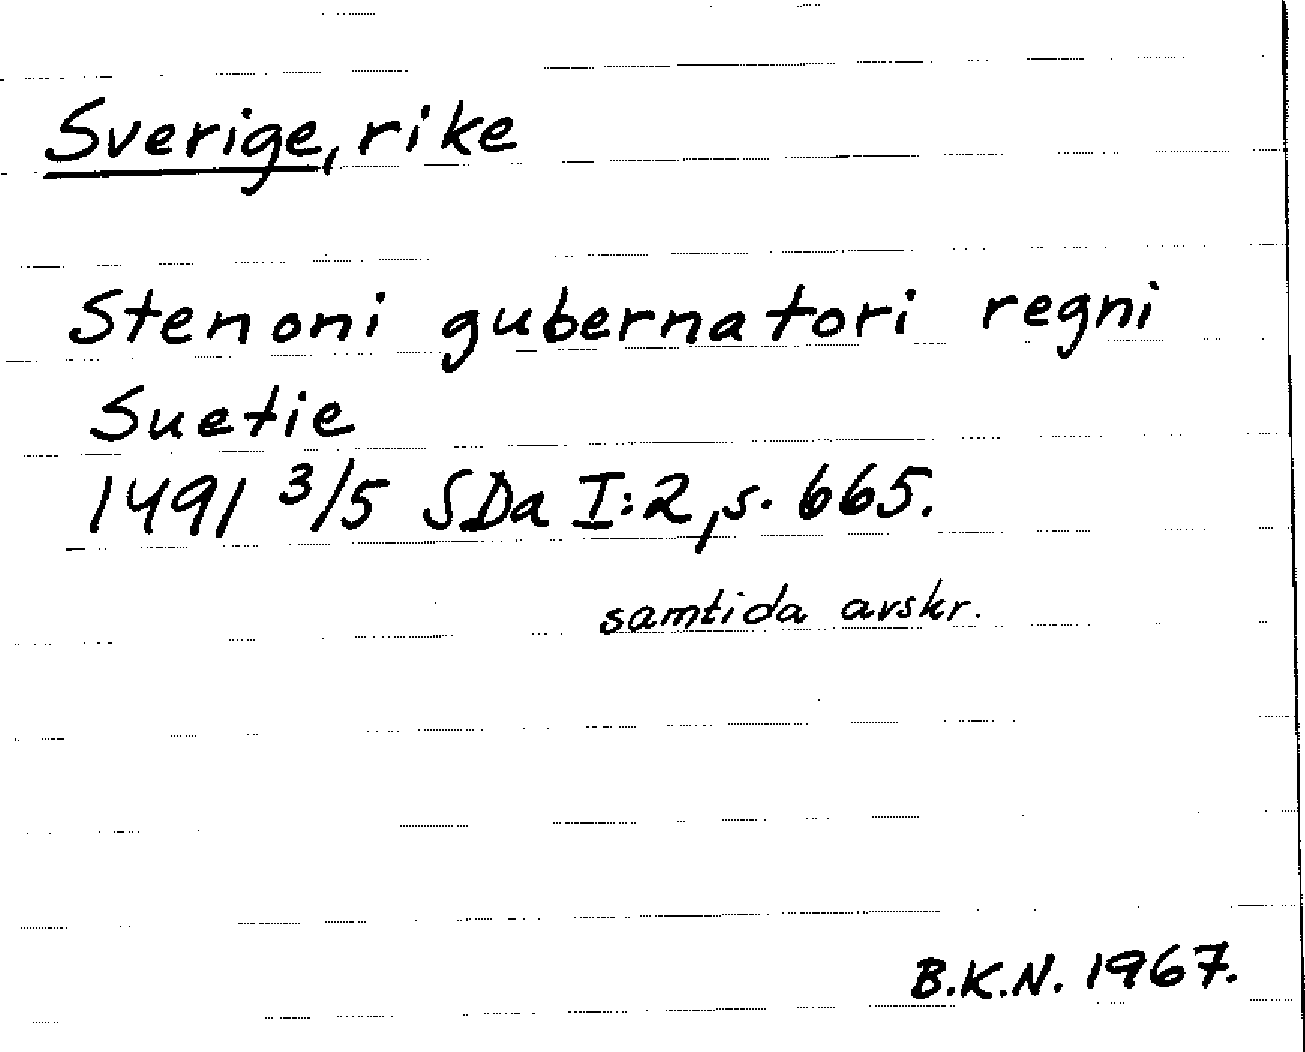 Sverige, rike
Stenoni gubernatori regni
Suetie
1491 3/5 SDa I:2, s. 665.
samtida avskr.
B.K.N. 1967.